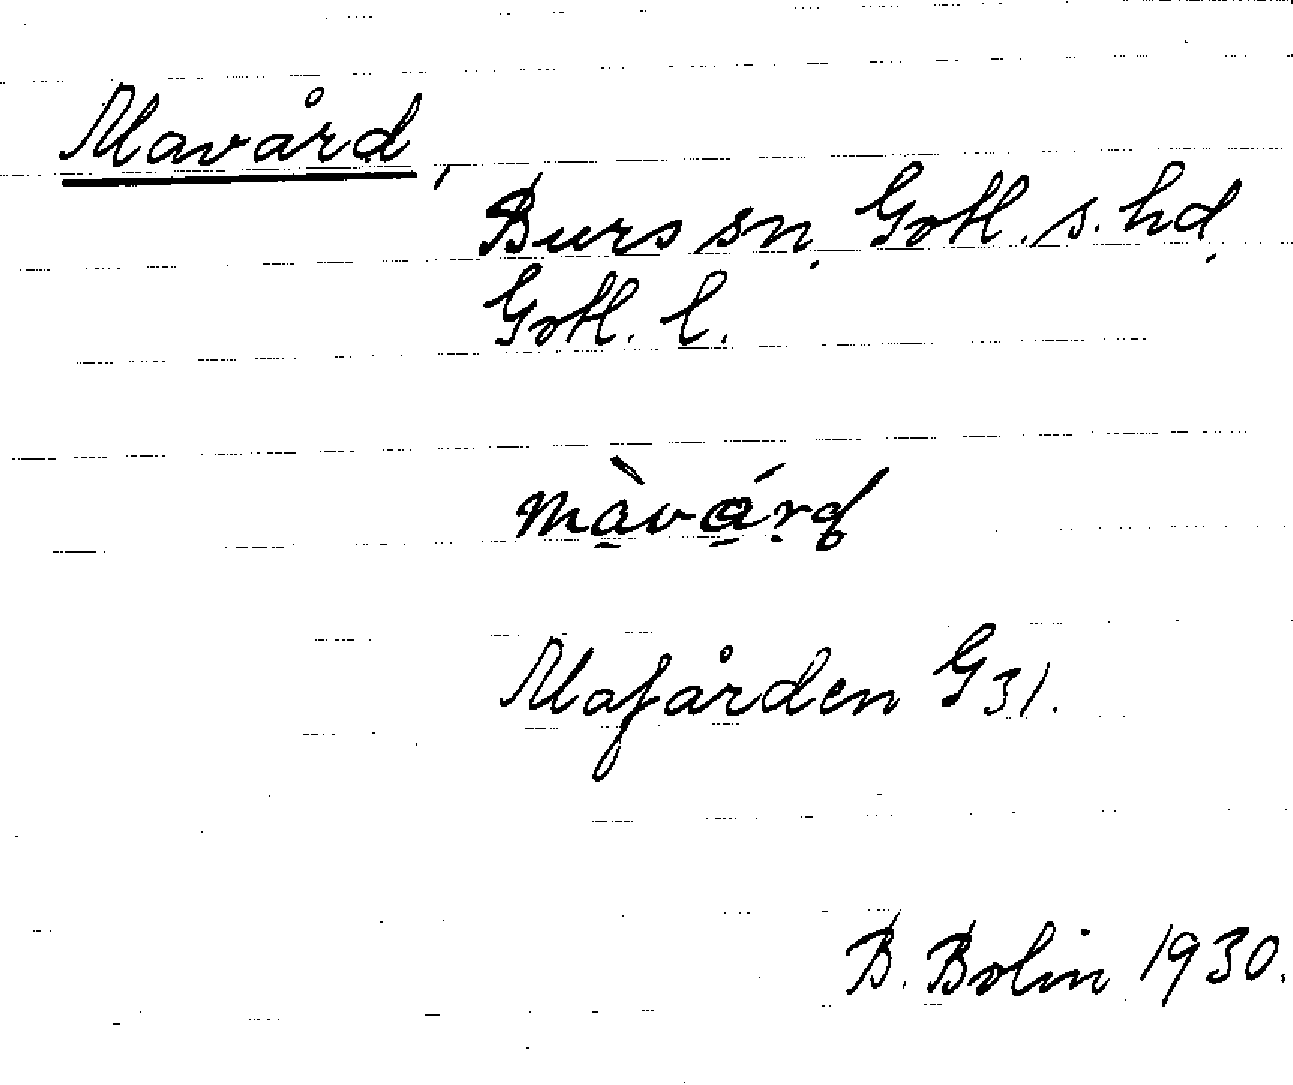 Mavård,
Burs sn, Gotl. s. hd,
Gotl. l.
Mafården G 31.
B. Bolin 1930.